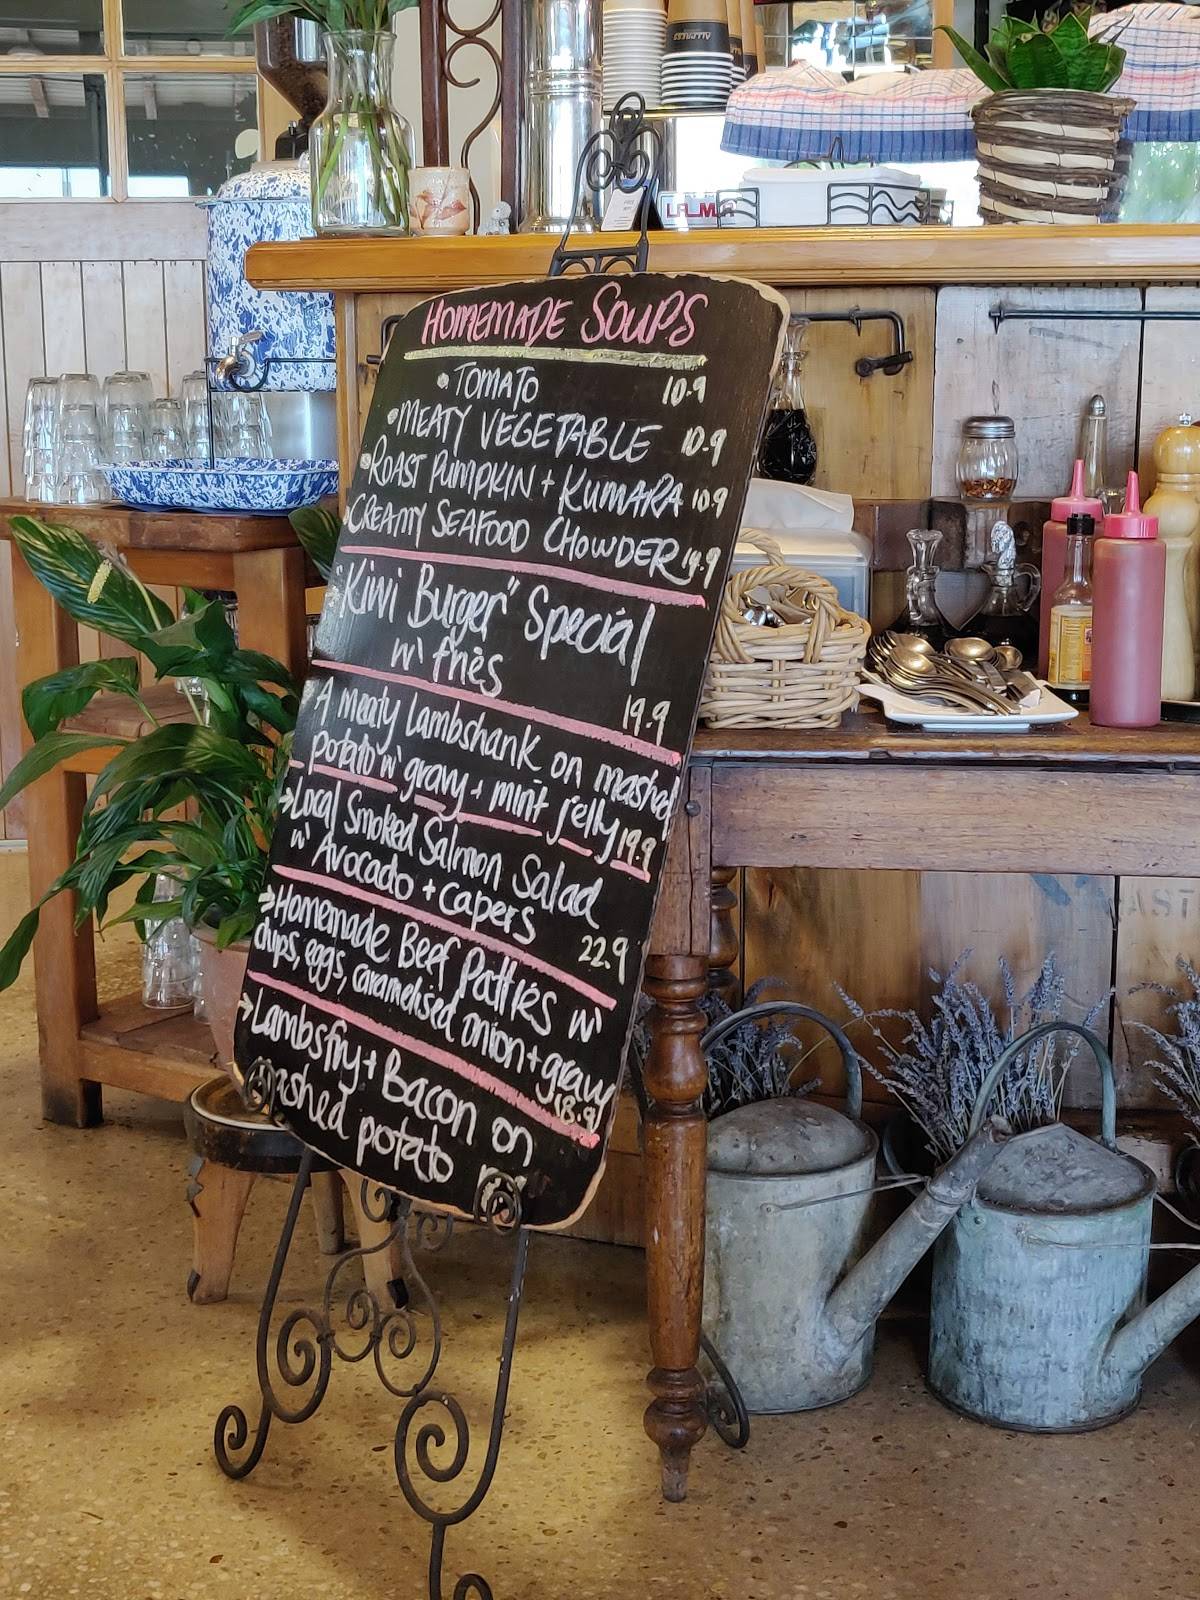 HOMEMADE SOUPS
• TOMATO 10.9
• MEATY VEGETABLE 10.9
• ROAST PUMPKIN + KUMARA 10.9
• CREAMY SEAFOOD CHOWDER 14.9
"Kiwi Burger" Special
w' fries 19.9
A meaty Lambshank on mashed
potato w' gravy + mint jelly 19.9
→ Local Smoked Salmon Salad
w' Avocado + capers 22.9
→ Homemade Beef Patties w'
chips, eggs, caramelised onion + gravy
18.9
→ Lambsfry + Bacon on
mashed potato